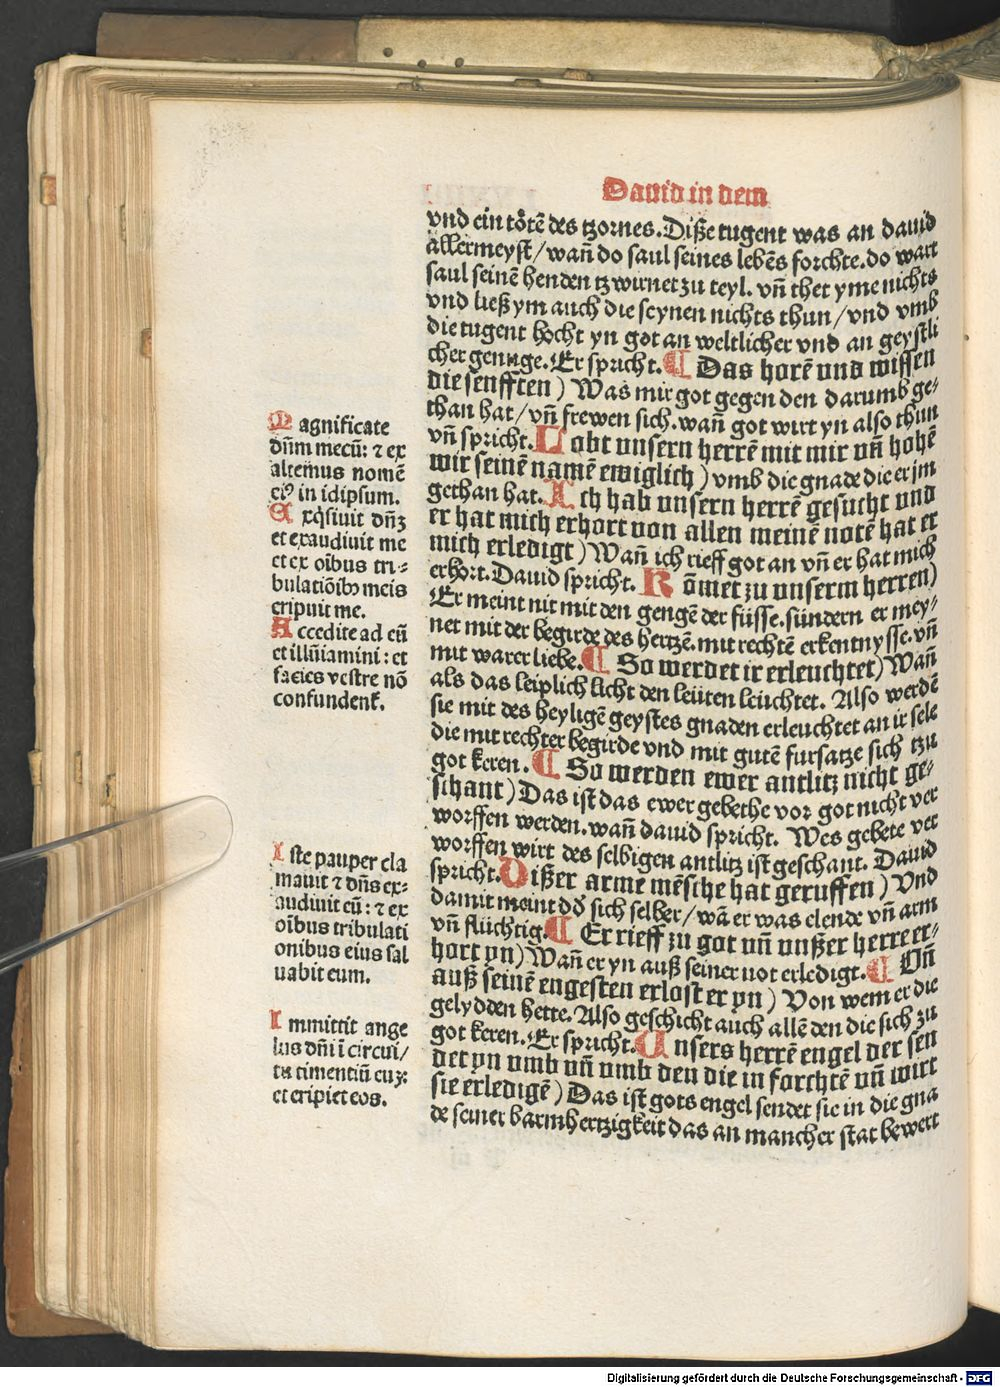 Dauid in dem
vnd ein tötē des tzornes. Diße tugent was an dauid
allermeyst/wañ do saul seines lebēs forchte. do wart
saul seinē henden tzwirnet zu teyl. vñ thet yme nichts
vnd ließ ym auch die seynen nichts thun/vnd vmb
die tugent hocht yn got an weltlicher vnd an geystli
cher genuge. Er spricht. ¶ Das horē vnd wissen
die senfften) Was mir got gegen den darumb ge⸗
than hat/vñ frewen sich. wañ got wirt yn also thun
vñ spricht. Lobt vnsern herrē mit mir vñ hohē
wir seinē namē ewiglich) vmb die gnade die er jm
gethan hat. Ich hab vnsern herrē gesucht vnd
er hat mich erhort von allen meinē notē hat er
mich erledigt) Wañ ich rieff got an vñ er hat mich
erhort. Dauid spricht. Kōmet zu vnserm herren)
Er meint nit mit den gengē der füsse. sündern er mey⸗
net mit der begirde des hertzē. mit rechtē erkentnysse. vñ
mit warer liebe. ¶ So werdet ir erleuchtet) Wañ
als das leiplich licht den leüten leüchtet. Also werdē
sie mit des heyligē geystes gnaden erleuchtet an ir sele
die mit rechter begirde vnd mit gutē fursatze sich tzu
got keren. ¶ So werden ewer antlitz nicht ge⸗
schant) Das ist das ewer gebethe vor got nicht ver
worffen werden. wañ dauid spricht. Wes gebete ver
worffen wirt des selbigen antlitz ist geschant. Dauid
spricht. Dißer arme mēsche hat geruffen) Vnd
damit meint dō sich selber/wā er was elende vñ arm
vñ flüchtig. ¶ Er rieff zu got vñ vnßer herre er⸗
hort yn) Wañ er yn auß seiner not erledigt. ¶ Vñ
auß seinē engesten erlost er yn) Von wem er die
gelydden hette. Also geschicht auch allē den die sich zu
got keren. Er spricht. Vnsers herrē engel der sen
det yn vmb vñ vmb den die in forchtē vñ wirt
sie erledigē) Das ist gots engel sendet sie in die gna
de seiner barmhertzigkeit das an mancher stat bewert
Magnificate
dñm mecū: ⁊ ex
altemus nomē
eiꝰ in idipsum.
Exq̄siuit dñꝫ
et exaudiuit me
et ex oībus tri⸗
bulatiōibꝫ meis
eripuit me.
Accedite ad eū
et illūiamini: et
facies vestre nō
confundenƭ.
Iste pauper cla
mauit ⁊ dñs ex⸗
audiuit eū: ⁊ ex
oībus tribulati
onibus eius sal
uabit eum.
Immittit ange
lus dñi ī circui/
tu timentiū euꝫ:
et eripiet eos.
Digitalisierung gefördert durch die Deutsche Forschungsgemeinschaft - DFG